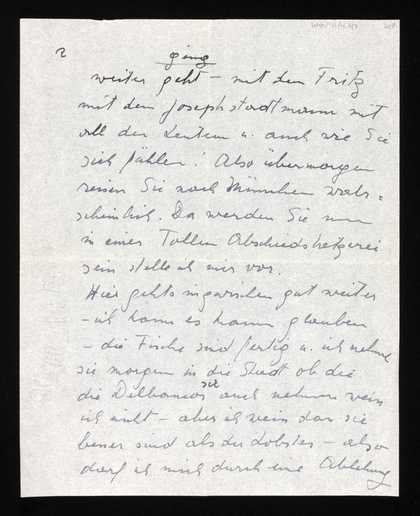 2
ging
weiter geht – mit dem Fritz
mit dem Josephstadtmann mit
all den Leuten u. auch wie Sie
sich fühlen! Also übermorgen
reisen Sie nach München wahr=
scheinlich. Da werden Sie nun
in einer Tollen Abschiedshetzerei
sein stelle ich mir vor.
Hier gehts inzwischen gut weiter
– ich kann es kaum glauben
– die Fische sind fertig u. ich nehme
sie morgen in die Stadt ob die
die Delbancos sie auch nehmen weis
ich nicht – aber ich weis das sie
besser sind als der Lobster – also
darf ich mich durch eine Ablehnung